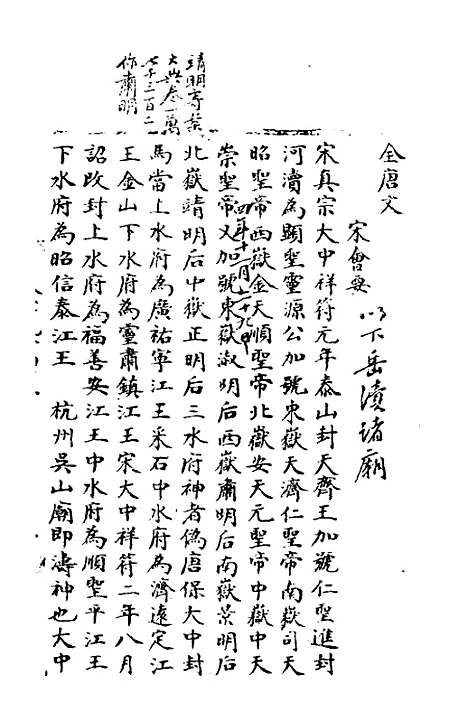 全唐文
宋會要
以下岳瀆諸廟
宋真宗大中祥符元年泰山封天齊王加號仁聖進封
河瀆為顯聖靈源公加號東嶽天濟仁聖帝南嶽司天
昭聖帝西嶽金天順聖帝北嶽安天元聖帝中嶽中天
崇聖帝又加號東嶽淑明后西嶽肅明后南嶽景明后
四年十一月二十九日
北嶽靖明后中嶽正明后三水府神者偽唐保大中封
馬當上水府為廣祐寧江王采石中水府為濟遠定江
王金山下水府為靈肅鎮江王宋大中祥符二年八月
詔改封上水府為福善安江王中水府為順聖平江王
下水府為昭信泰江王　杭州吳山廟即濤神也大中
靖明寺案
大典卷一萬
七千三百二
作肅明